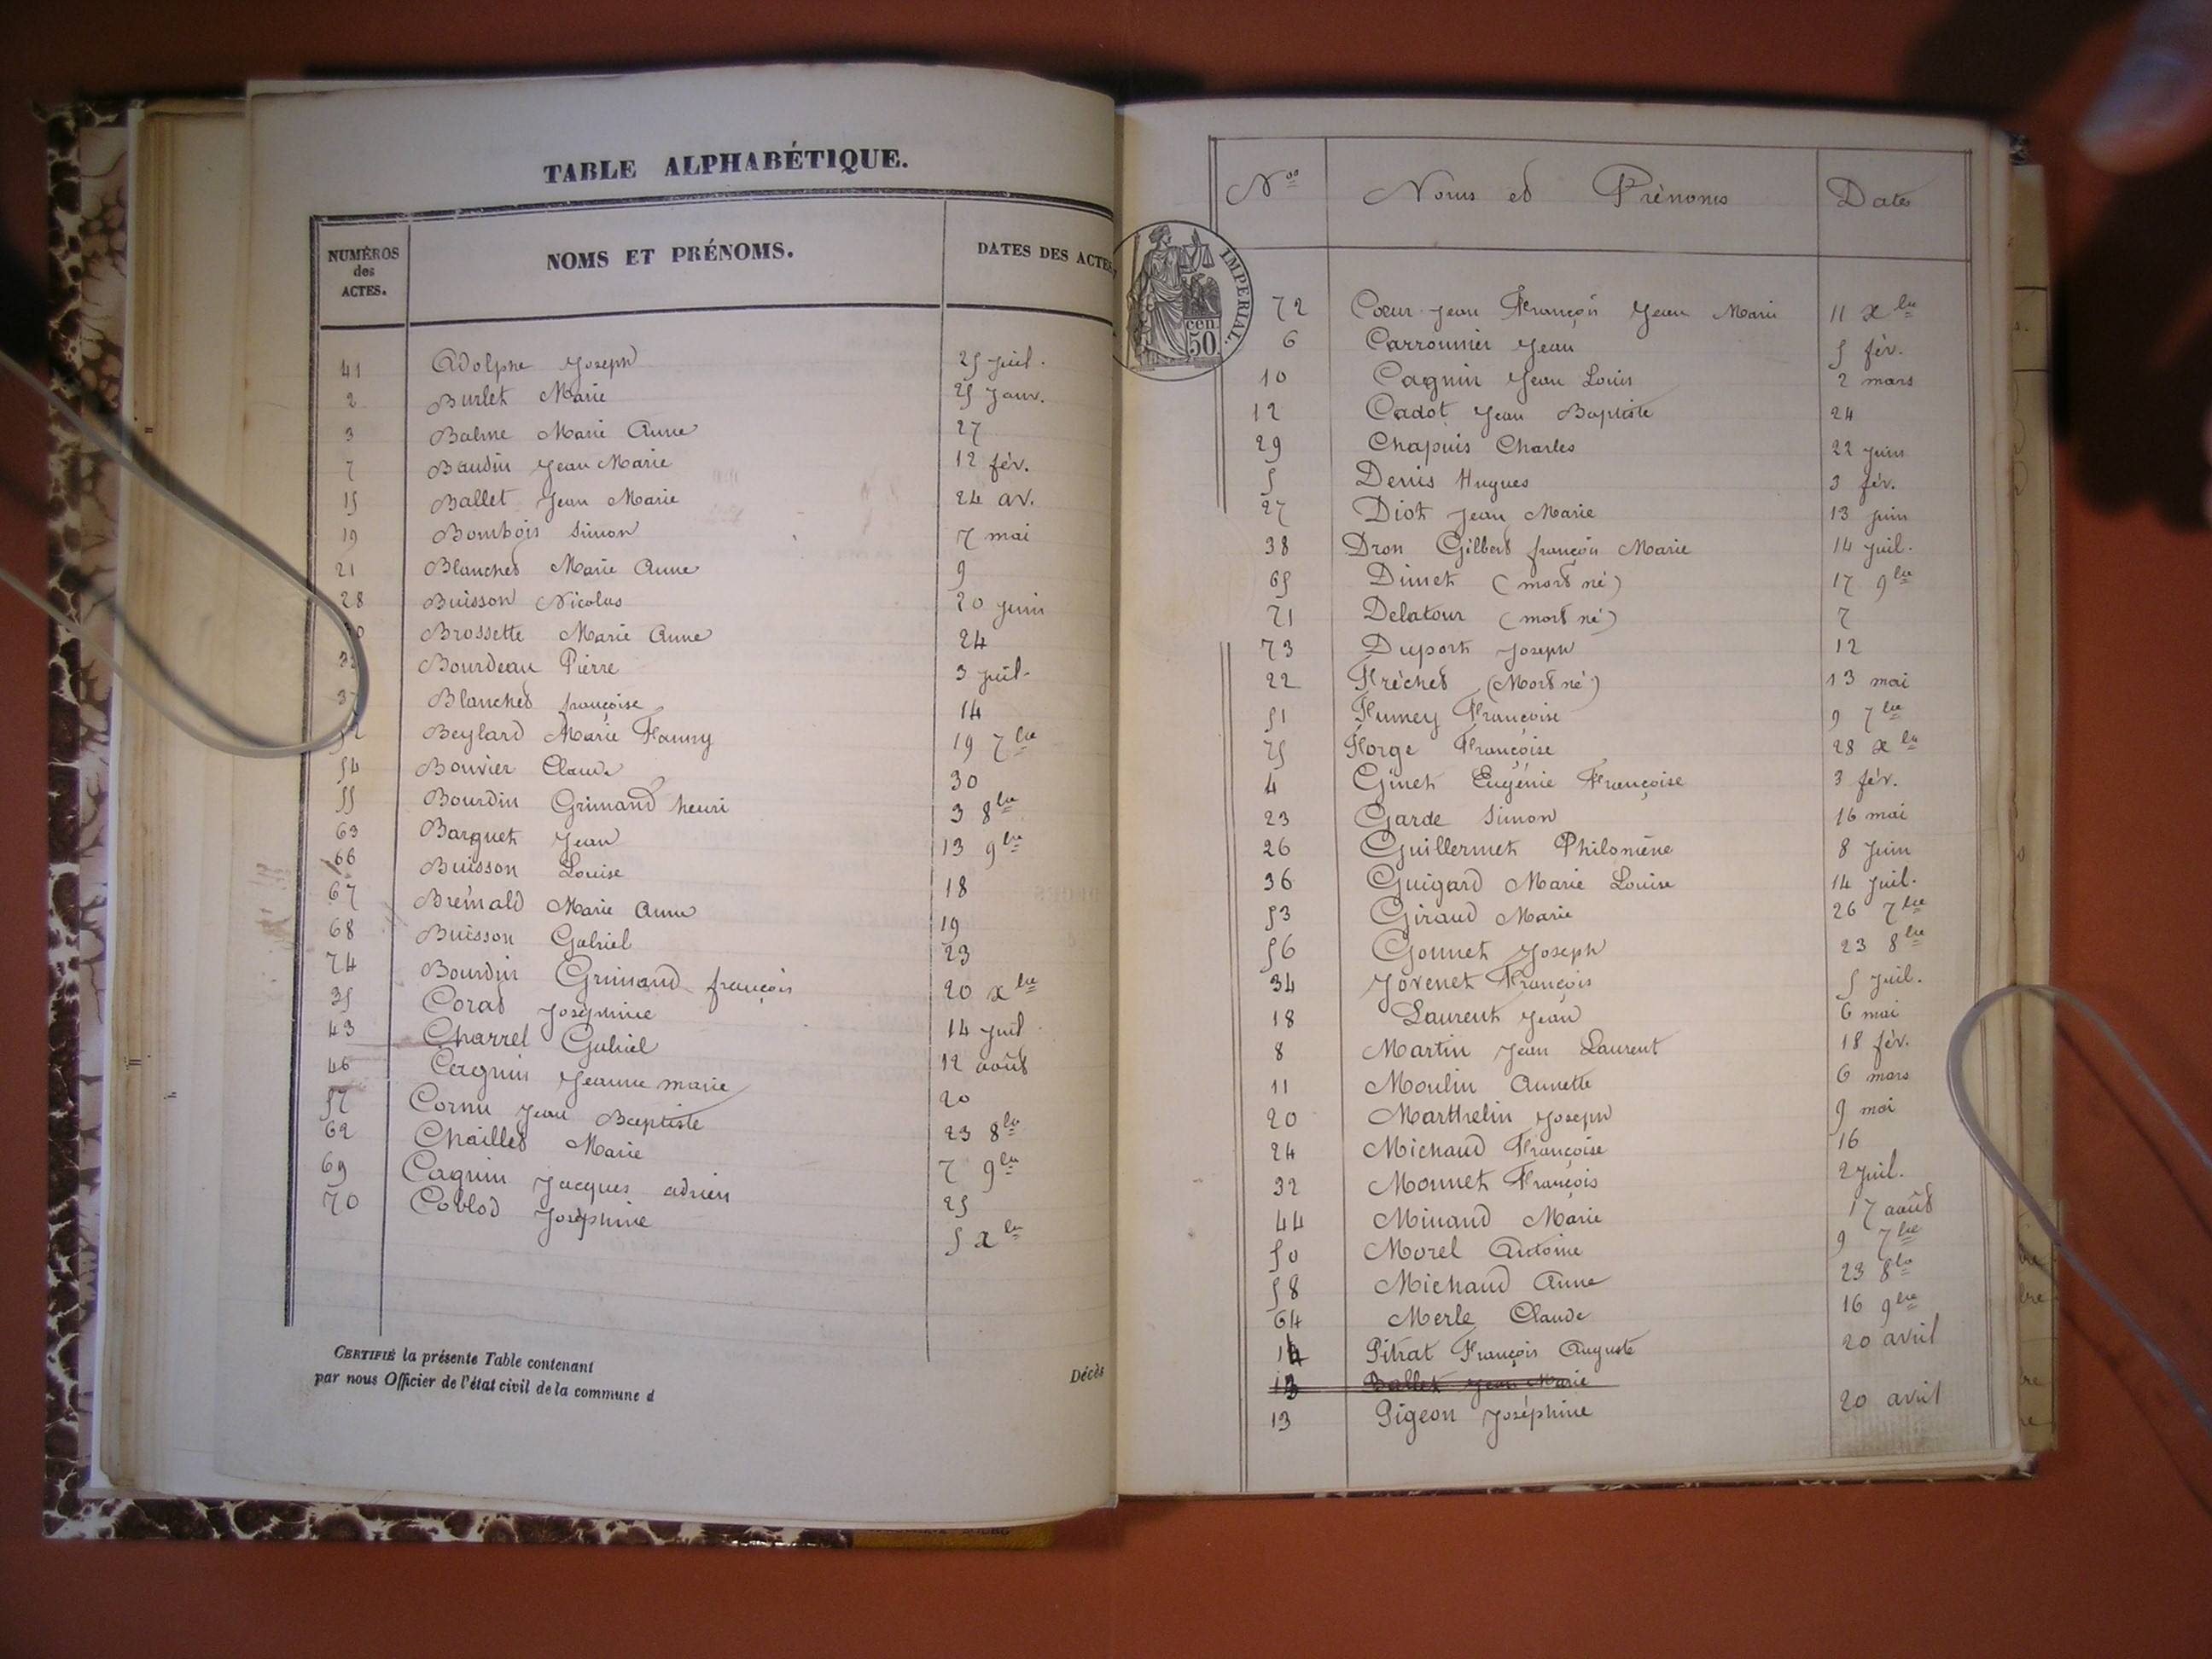 TABLE ALPHABÉTIQUE.
NUMÉROS des ACTES. NOMS ET PRÉNOMS. DATES DES ACTES
41 Adolphe Joseph 25 juil.
2 Burlet Marie 25 janv.
3 Balme Marie Anne 27
7 Baudin Jean Marie 12 fév.
15 Ballet Jean Marie 24 av.
19 Bombois Simon 7 mai
21 Blanchet Marie Anne 9
28 Buisson Nicolas 20 juin
Brossette Marie Anne 24
Bourdeau Pierre 3 juil.
37 Blanchet françoise 14
52 Beylard Marie Fanny 19 7bre
54 Bouvier Claude 30
55 Bourdin Grimand henri 3 8bre
63 Barquet Jean 13 9bre
66 Buisson Louise 18
67 Brémald Marie Anne 19
68 Buisson Gabriel 23
74 Bourdin Grimand françois 20 xbre
35 Corat Joséphine 14 juil.
43 Charrel Gabriel 12 août
46 Cagnin Jeanne marie 20
57 Cornu Jean Baptiste 23 8bre
62 Chaillet Marie 7 9bre
69 Cagnin Jacques adrien 25
70 Coblod Joséphine 5 xbre
CERTIFIÉ la présente Table contenant Décès
par nous Officier de l'état civil de la commune d
IMPERIAL.
50 cen.
Nos Noms et Prénoms Dates
72 Coeur Jean François Jean Marie 11 xbre
6 Carronnier Jean 5 fév.
10 Cagnin Jean Louis 2 mars
12 Cadot Jean Baptiste 24
29 Chapuis Charles 22 juin
5 Denis Hugues 3 fév.
27 Diot Jean Marie 13 juin
38 Dron Gilbert françois Marie 14 juil.
65 Dimet (mort né) 17 9bre
71 Delatour (mort né) 7
73 Duport Joseph 12
22 Fréchet (Mort né) 13 mai
51 Fumey Françoise 9 7bre
75 Forge Françoise 28 xbre
4 Ginet Eugénie Françoise 3 fév.
23 Garde Simon 16 mai
26 Guillermet Philomène 8 Juin
36 Guigard Marie Louise 14 juil.
53 Giraud Marie 26 7bre
56 Gonnet Joseph 23 8bre
34 Jovenet François 5 juil.
18 Laurent Jean 6 mai
8 Martin Jean Laurent 18 fév.
11 Moulin Annette 6 mars
20 Marthelin Joseph 9 mai
24 Michaud Françoise 16
32 Monnet François 2 juil.
44 Minand Marie 17 août
50 Morel Antoine 9 7bre
58 Michaud Anne 23 8bre
64 Merle Claude 16 9bre
14 Pitrat François Auguste 20 avril
13 Ballet Jean Marie
13 Pigeon Joséphine 20 avril